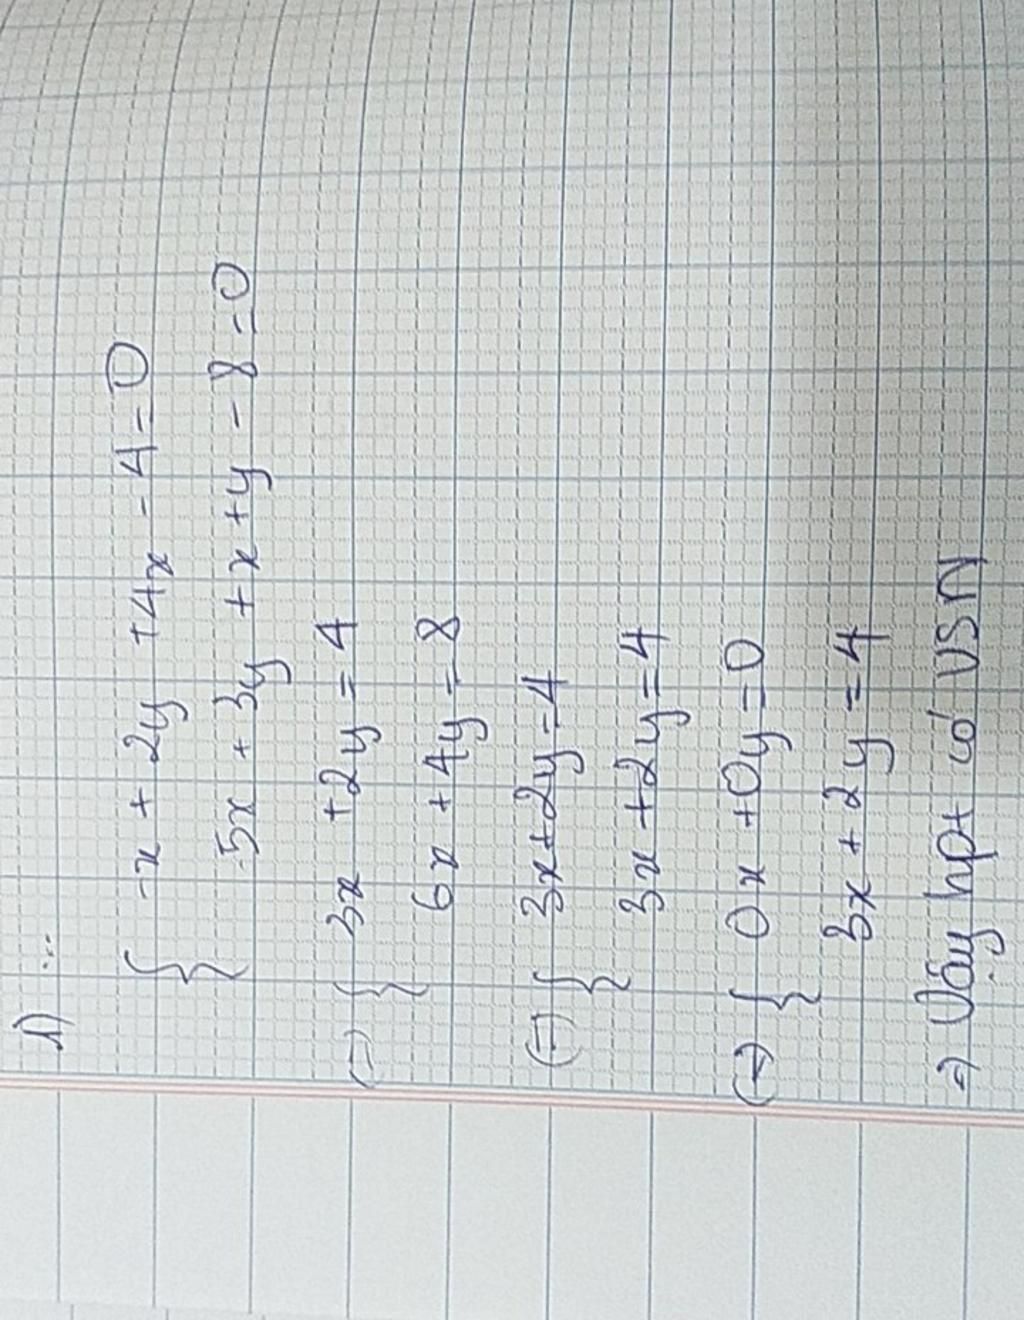 1) ...
{ -x + 2y + 4x - 4 = 0
5x + 3y + x + y - 8 = 0
(=) { 3x + 2y = 4
6x + 4y = 8
(=) { 3x + 2y = 4
3x + 2y = 4
(=) { 0x + 0y = 0
3x + 2y = 4
=) Vậy hpt có VSN